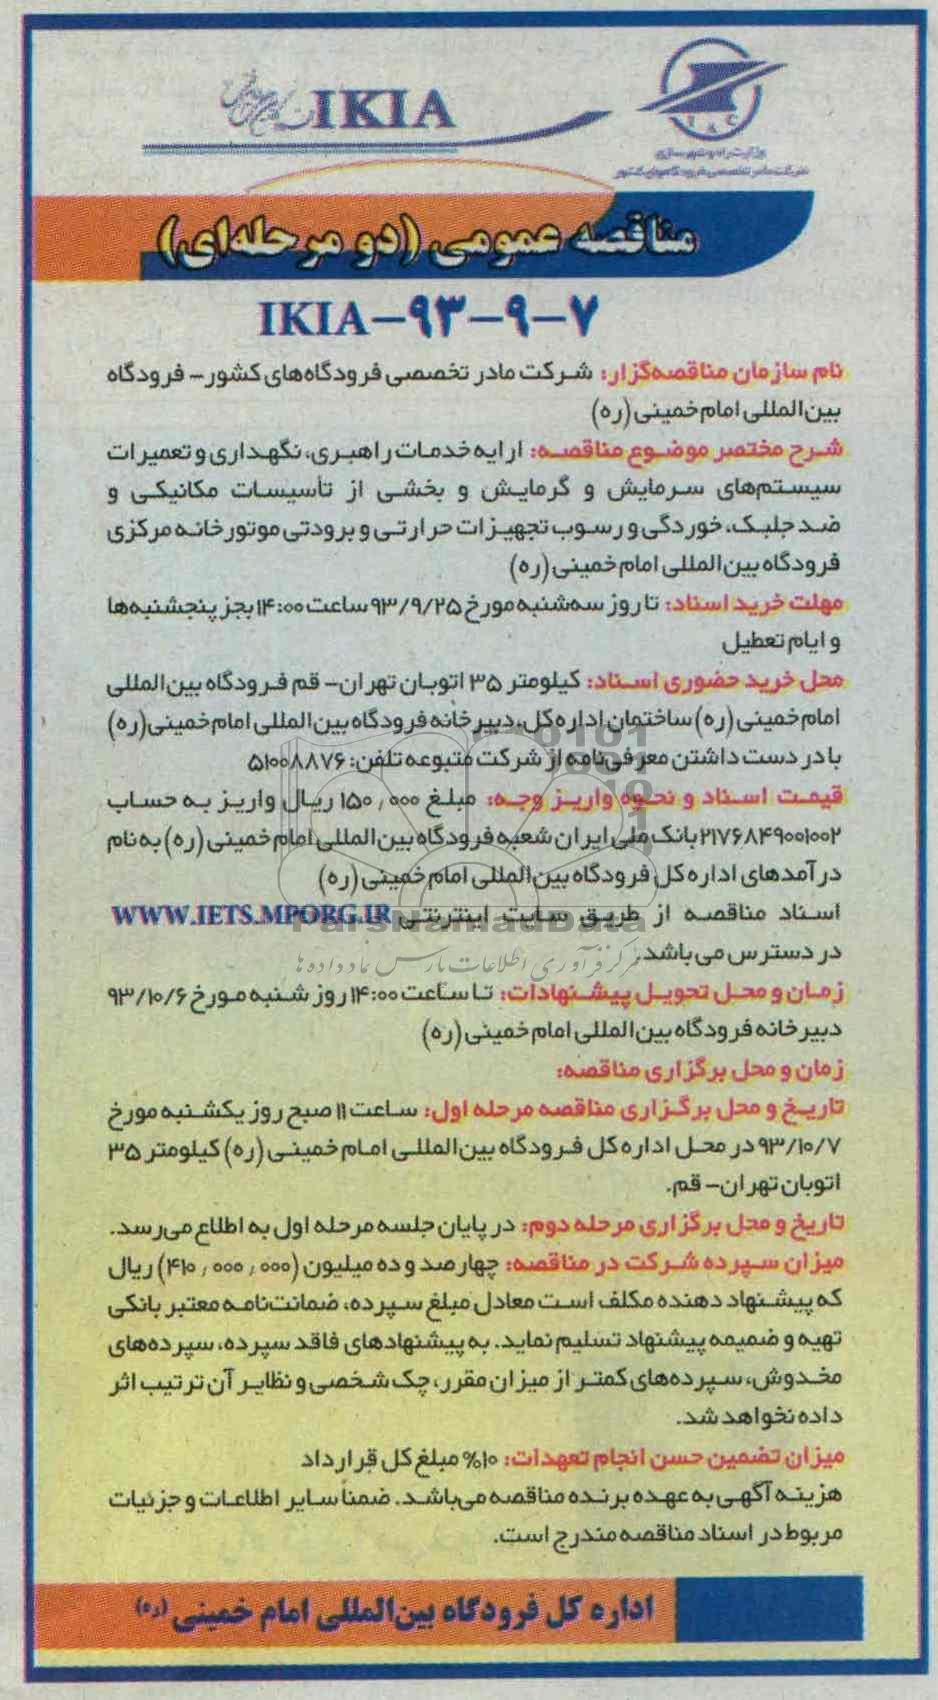 IKIA
IAC
وزارت راه و شهرسازی
شرکت مادر تخصصی فرودگاههای کشور
مناقصه عمومی (دو مرحله‌ای)
IKIA-۹۳-۹-۷
نام سازمان مناقصه‌گزار: شرکت مادر تخصصی فرودگاه‌های کشور- فرودگاه
بین‌المللی امام خمینی (ره)
شرح مختصر موضوع مناقصه: ارایه خدمات راهبری، نگهداری و تعمیرات
سیستم‌های سرمایش و گرمایش و بخشی از تأسیسات مکانیکی و
ضد جلبک، خوردگی و رسوب تجهیزات حرارتی و برودتی موتورخانه مرکزی
فرودگاه بین‌المللی امام خمینی (ره)
مهلت خرید اسناد: تا روز سه‌شنبه مورخ ۹۳/۹/۲۵ ساعت ۱۴:۰۰ بجز پنجشنبه‌ها
و ایام تعطیل
محل خرید حضوری اسناد: کیلومتر ۳۵ اتوبان تهران- قم فرودگاه بین‌المللی
امام خمینی (ره) ساختمان اداره کل، دبیرخانه فرودگاه بین‌المللی امام خمینی (ره)
با در دست داشتن معرفی‌نامه از شرکت متبوعه تلفن: ۵۱۰۰۸۸۷۶
قیمت اسناد و نحوه واریز وجه: مبلغ ۱۵۰,۰۰۰ ریال واریز به حساب
۲۱۷۶۸۴۹۰۰۱۰۰۲ بانک ملی ایران شعبه فرودگاه بین‌المللی امام خمینی (ره) به نام
درآمدهای اداره کل فرودگاه بین‌المللی امام خمینی (ره)
اسناد مناقصه از طریق سایت اینترنتی WWW.IETS.MPORG.IR
در دسترس می باشد.
ParsNamadData
مرکز فرآوری اطلاعات پارس نماد داده ها
زمان و محل تحویل پیشنهادات: تا ساعت ۱۴:۰۰ روز شنبه مورخ ۹۳/۱۰/۶
دبیرخانه فرودگاه بین‌المللی امام خمینی (ره)
زمان و محل برگزاری مناقصه:
تاریخ و محل برگزاری مناقصه مرحله اول: ساعت ۱۱ صبح روز یکشنبه مورخ
۹۳/۱۰/۷ در محل اداره کل فرودگاه بین‌المللی امام خمینی (ره) کیلومتر ۳۵
اتوبان تهران- قم.
تاریخ و محل برگزاری مرحله دوم: در پایان جلسه مرحله اول به اطلاع می‌رسد.
میزان سپرده شرکت در مناقصه: چهارصد و ده میلیون (۴۱۰,۰۰۰,۰۰۰) ریال
که پیشنهاد دهنده مکلف است معادل مبلغ سپرده، ضمانت‌نامه معتبر بانکی
تهیه و ضمیمه پیشنهاد تسلیم نماید. به پیشنهادهای فاقد سپرده، سپرده‌های
مخدوش، سپرده‌های کمتر از میزان مقرر، چک شخصی و نظایر آن ترتیب اثر
داده نخواهد شد.
میزان تضمین حسن انجام تعهدات: ۱۰% مبلغ کل قرارداد
هزینه آگهی به عهده برنده مناقصه می‌باشد. ضمناً سایر اطلاعات و جزئیات
مربوط در اسناد مناقصه مندرج است.
اداره کل فرودگاه بین‌المللی امام خمینی (ره)